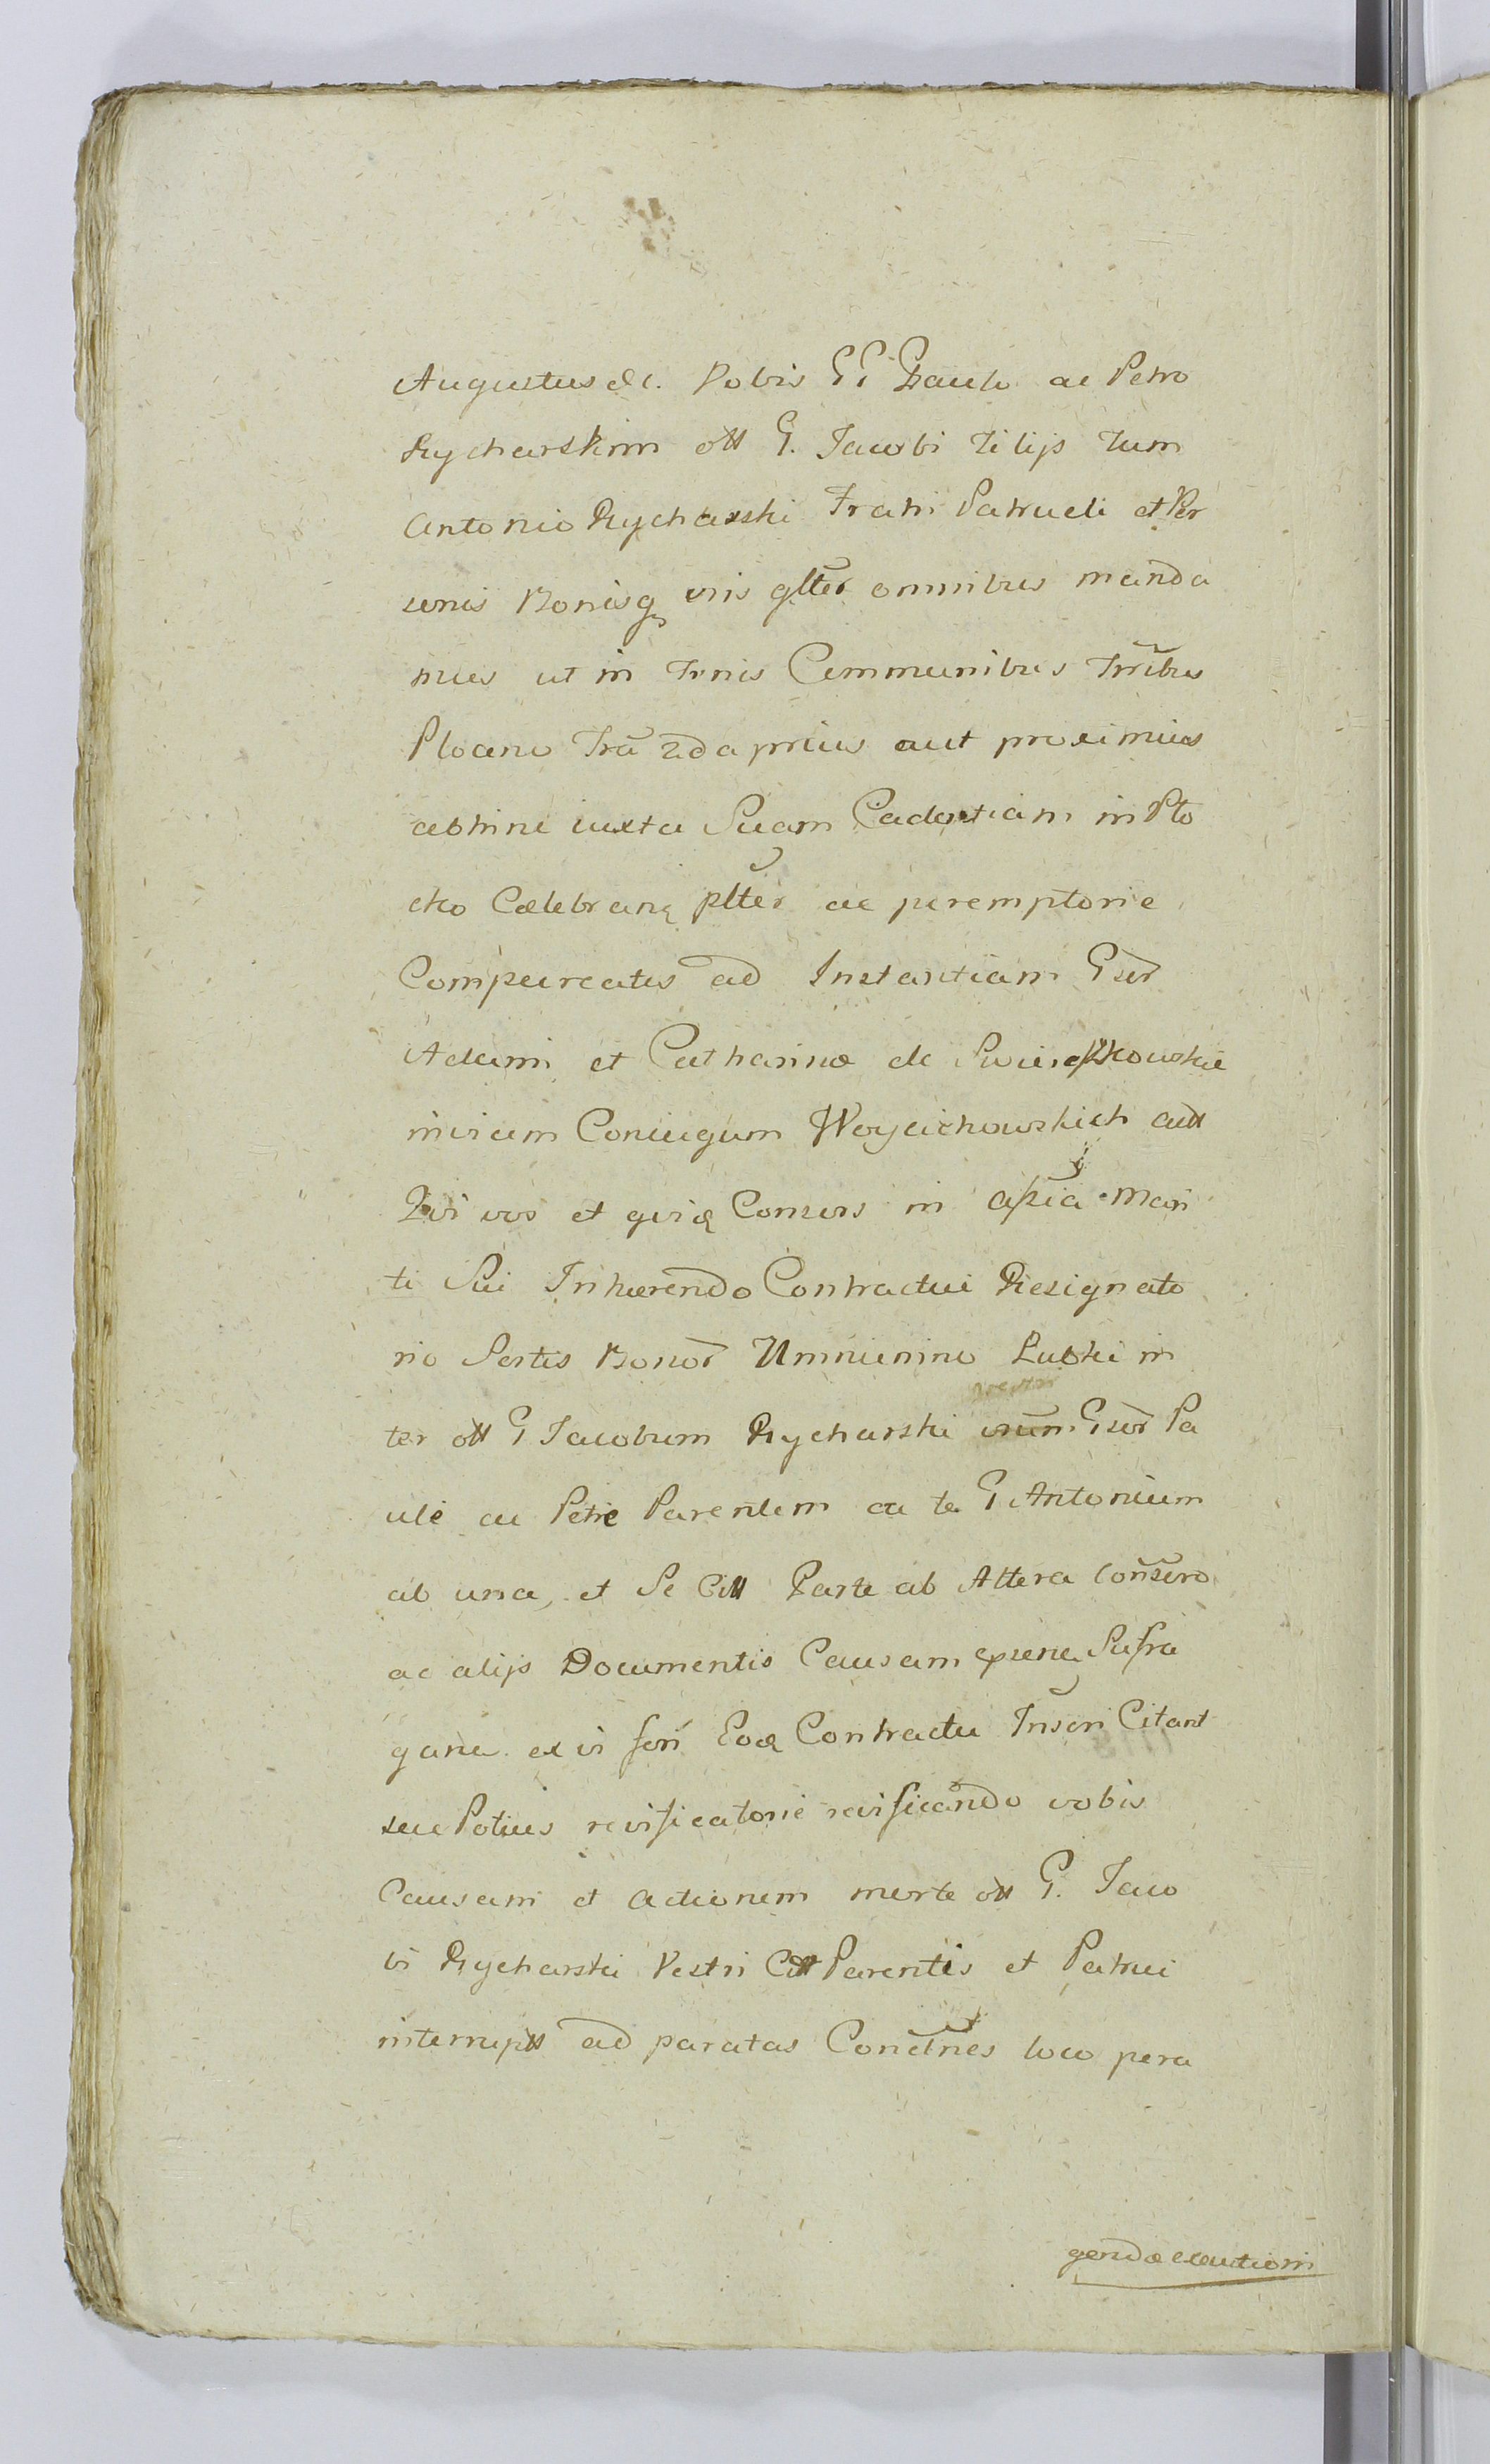 Augustus &c. Vobis GG Paulo ac Petro
Rycharskim oll G. Jacobi Filijs tum
Antonio Rycharski Fratri Patrueli et Per
sonis Bonisq vris glter omnibus manda
mus ut in Trnis Communibus Trribus
Plocane Trra Zda prius aut proximius
abhinc iuxta Suam Cadentiam in Plo
cko Celebran plter ac peremptorie
Compareatis ad Instantiam Gser
Adami et Catharinæ de
Coniugum Woyciechowskich
vos et Consors in Mari
ti Sui Inhærendo Contractui Resignato
rio Sortis Bonor Umnienino Lubki in
ter oll G Jacobum Rycharski Gser Pa
uli ac Petri Parentem ac te G Antonium
ab una, et Se Citt Parte ab Altera
ac alijs Documentis Causam Sufra
gane ex vi fori Contractu Citant
seu Potius revificatorie revificando vobis
Causam et Actionem morte oll G. Jaco
bi Rycharski Vestri Citt Parentis et Patrui
interrupt ad paratas Condnes loco pera
gendæ executioni